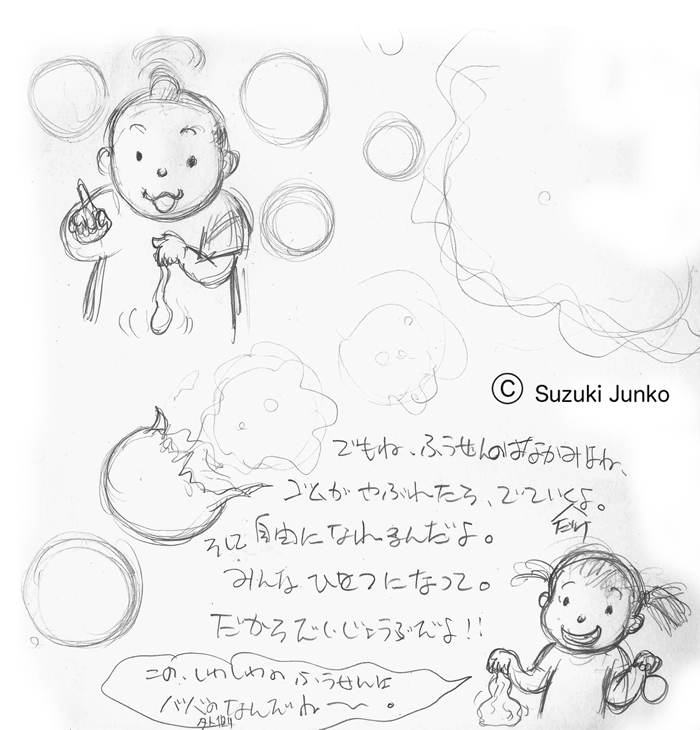 © Suzuki Junko
でもね、ふうせんのなかみはね、
ゴムが やぶれたら、でていくよ。
だけ
そして 自由になれるんだよ。
みんな ひとつになって。
だからだいじょうぶだよ!!
この、しわしわの ふうせんは
ババのなんだね〜。
外側